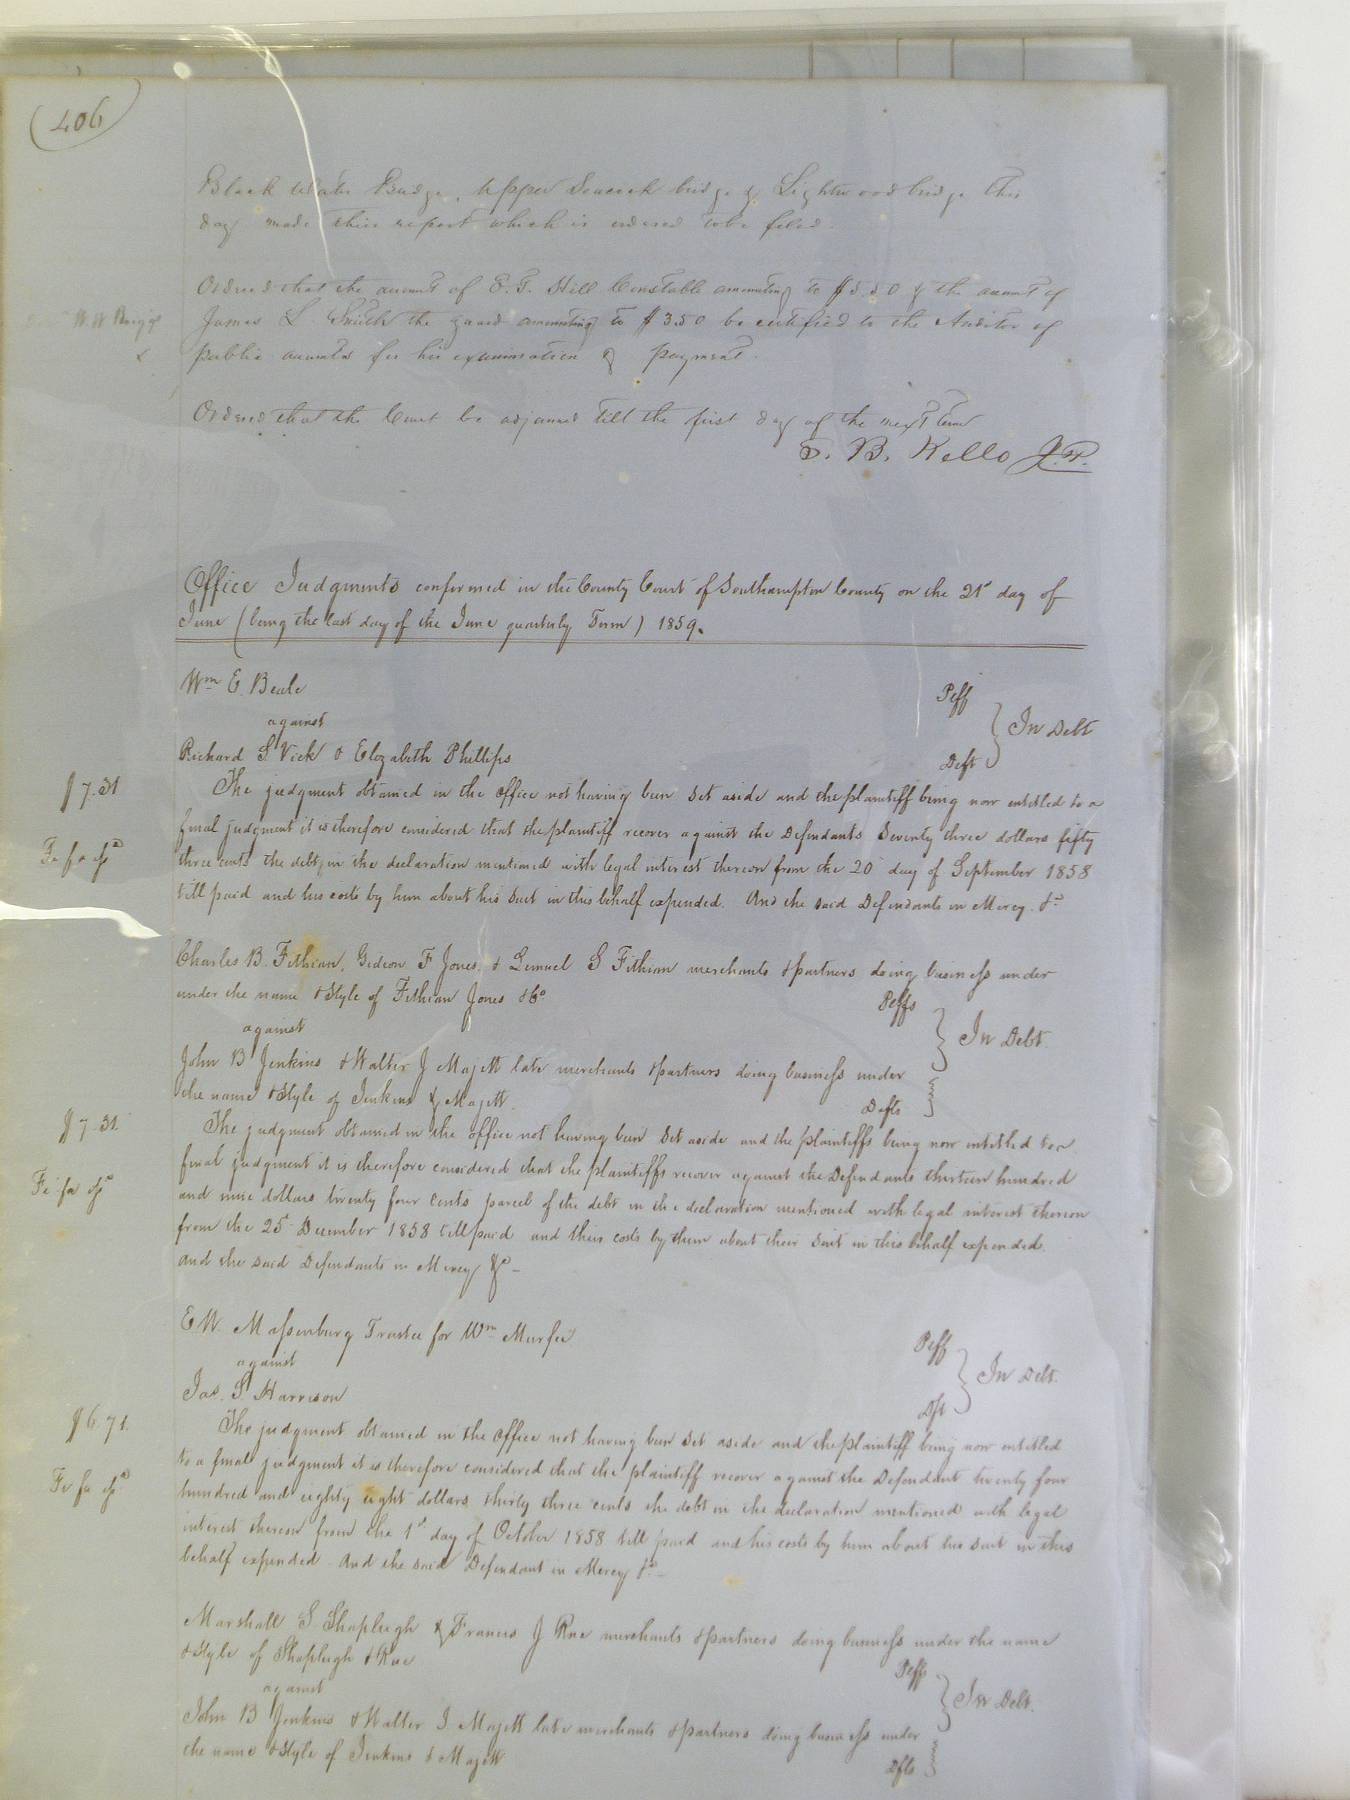 406
Black Water Bridge, Upper Seacock bridge & Lightwood bridge this
day made their report which is ordered to be filed.
Ordered that the account of E. T. Hill Constable amounting to $5.50 & the account of
James L. Smith the guard amounting to $3.50 be certified to the Auditor of
public accounts for his examination & payment.
Ordered that the Court be adjourned till the first day of the next term
B. Kello J.P.
Office Judgments confirmed in the County Court of Southampton County on the 21st day of
June (being the last day of the June quarterly Term) 1859.
Wm E. Beale Plff
against In Debt
Richard S Vick & Elizabeth Phillips Deft
$7.31 The judgment obtained in the office not having been set aside and the plaintiff being now entitled to a
final judgment it is therefore considered that the plaintiff recover against the Defendants Seventy three dollars fifty
Fi fa three cents the debt in the declaration mentioned with legal interest thereon from the 20 day of September 1858
till paid and his costs by him about his suit in this behalf expended. And the said Defendants in Mercy &c
Charles B. Fithian, Gideon F Jones, & Lemuel S Fithian merchants & partners doing business under
under the name & Style of Fithian Jones & Co Plffs
against In Debt.
John B Jenkins & Walter J Majett late merchants & partners doing business under
the name & Style of Jenkins & Majett. Defts
$7.31. The judgment obtained in the office not having been set aside and the plaintiffs being now entitled to a
final judgment it is therefore considered that the plaintiffs recover against the Defendants thirteen hundred
Fi fa and nine dollars twenty four cents parcel of the debt in the declaration mentioned with legal interest thereon
from the 25 December 1858 till paid and their costs by them about their suit in this behalf expended.
and the said Defendants in Mercy &c -
E. W. Massenburg Trustee for Wm Murfee Plff
against In Debt.
Jas. S Harrison Dft
$6.71. The judgment obtained in the office not having been set aside and the plaintiff being now entitled
to a final judgment it is therefore considered that the plaintiff recover against the Defendant twenty four
Fi fa hundred and eighty eight dollars thirty three cents the debt in the declaration mentioned with legal
interest thereon from the 1st day of October 1858 till paid and his costs by him about his suit in this
behalf expended. And the said Defendant in Mercy &c -
Marshall S. Shapleigh & Francis J Rue merchants & partners doing business under the name
& Style of Shapleigh & Rue Plffs
against In Debt.
John B Jenkins & Walter J. Majett late merchants & partners doing business under
the name & Style of Jenkins & Majett Dfts